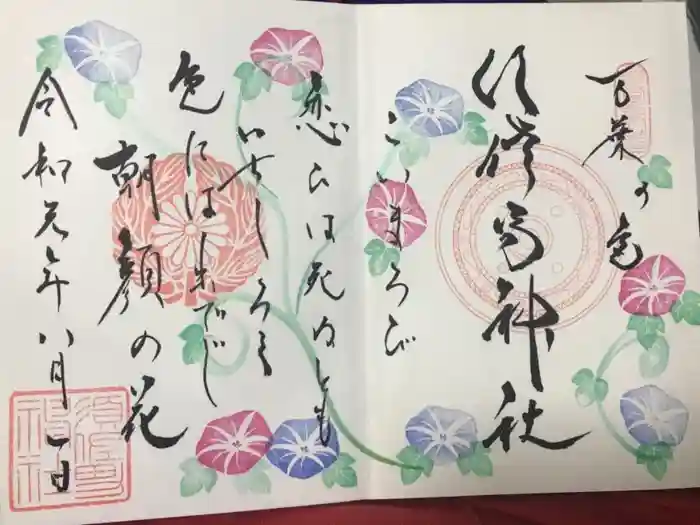 万葉の
神社
こいまろび
恋ひは死ぬとも
いちしろく
色には出でじ
朝顔の花
令和元年八月一日
神社